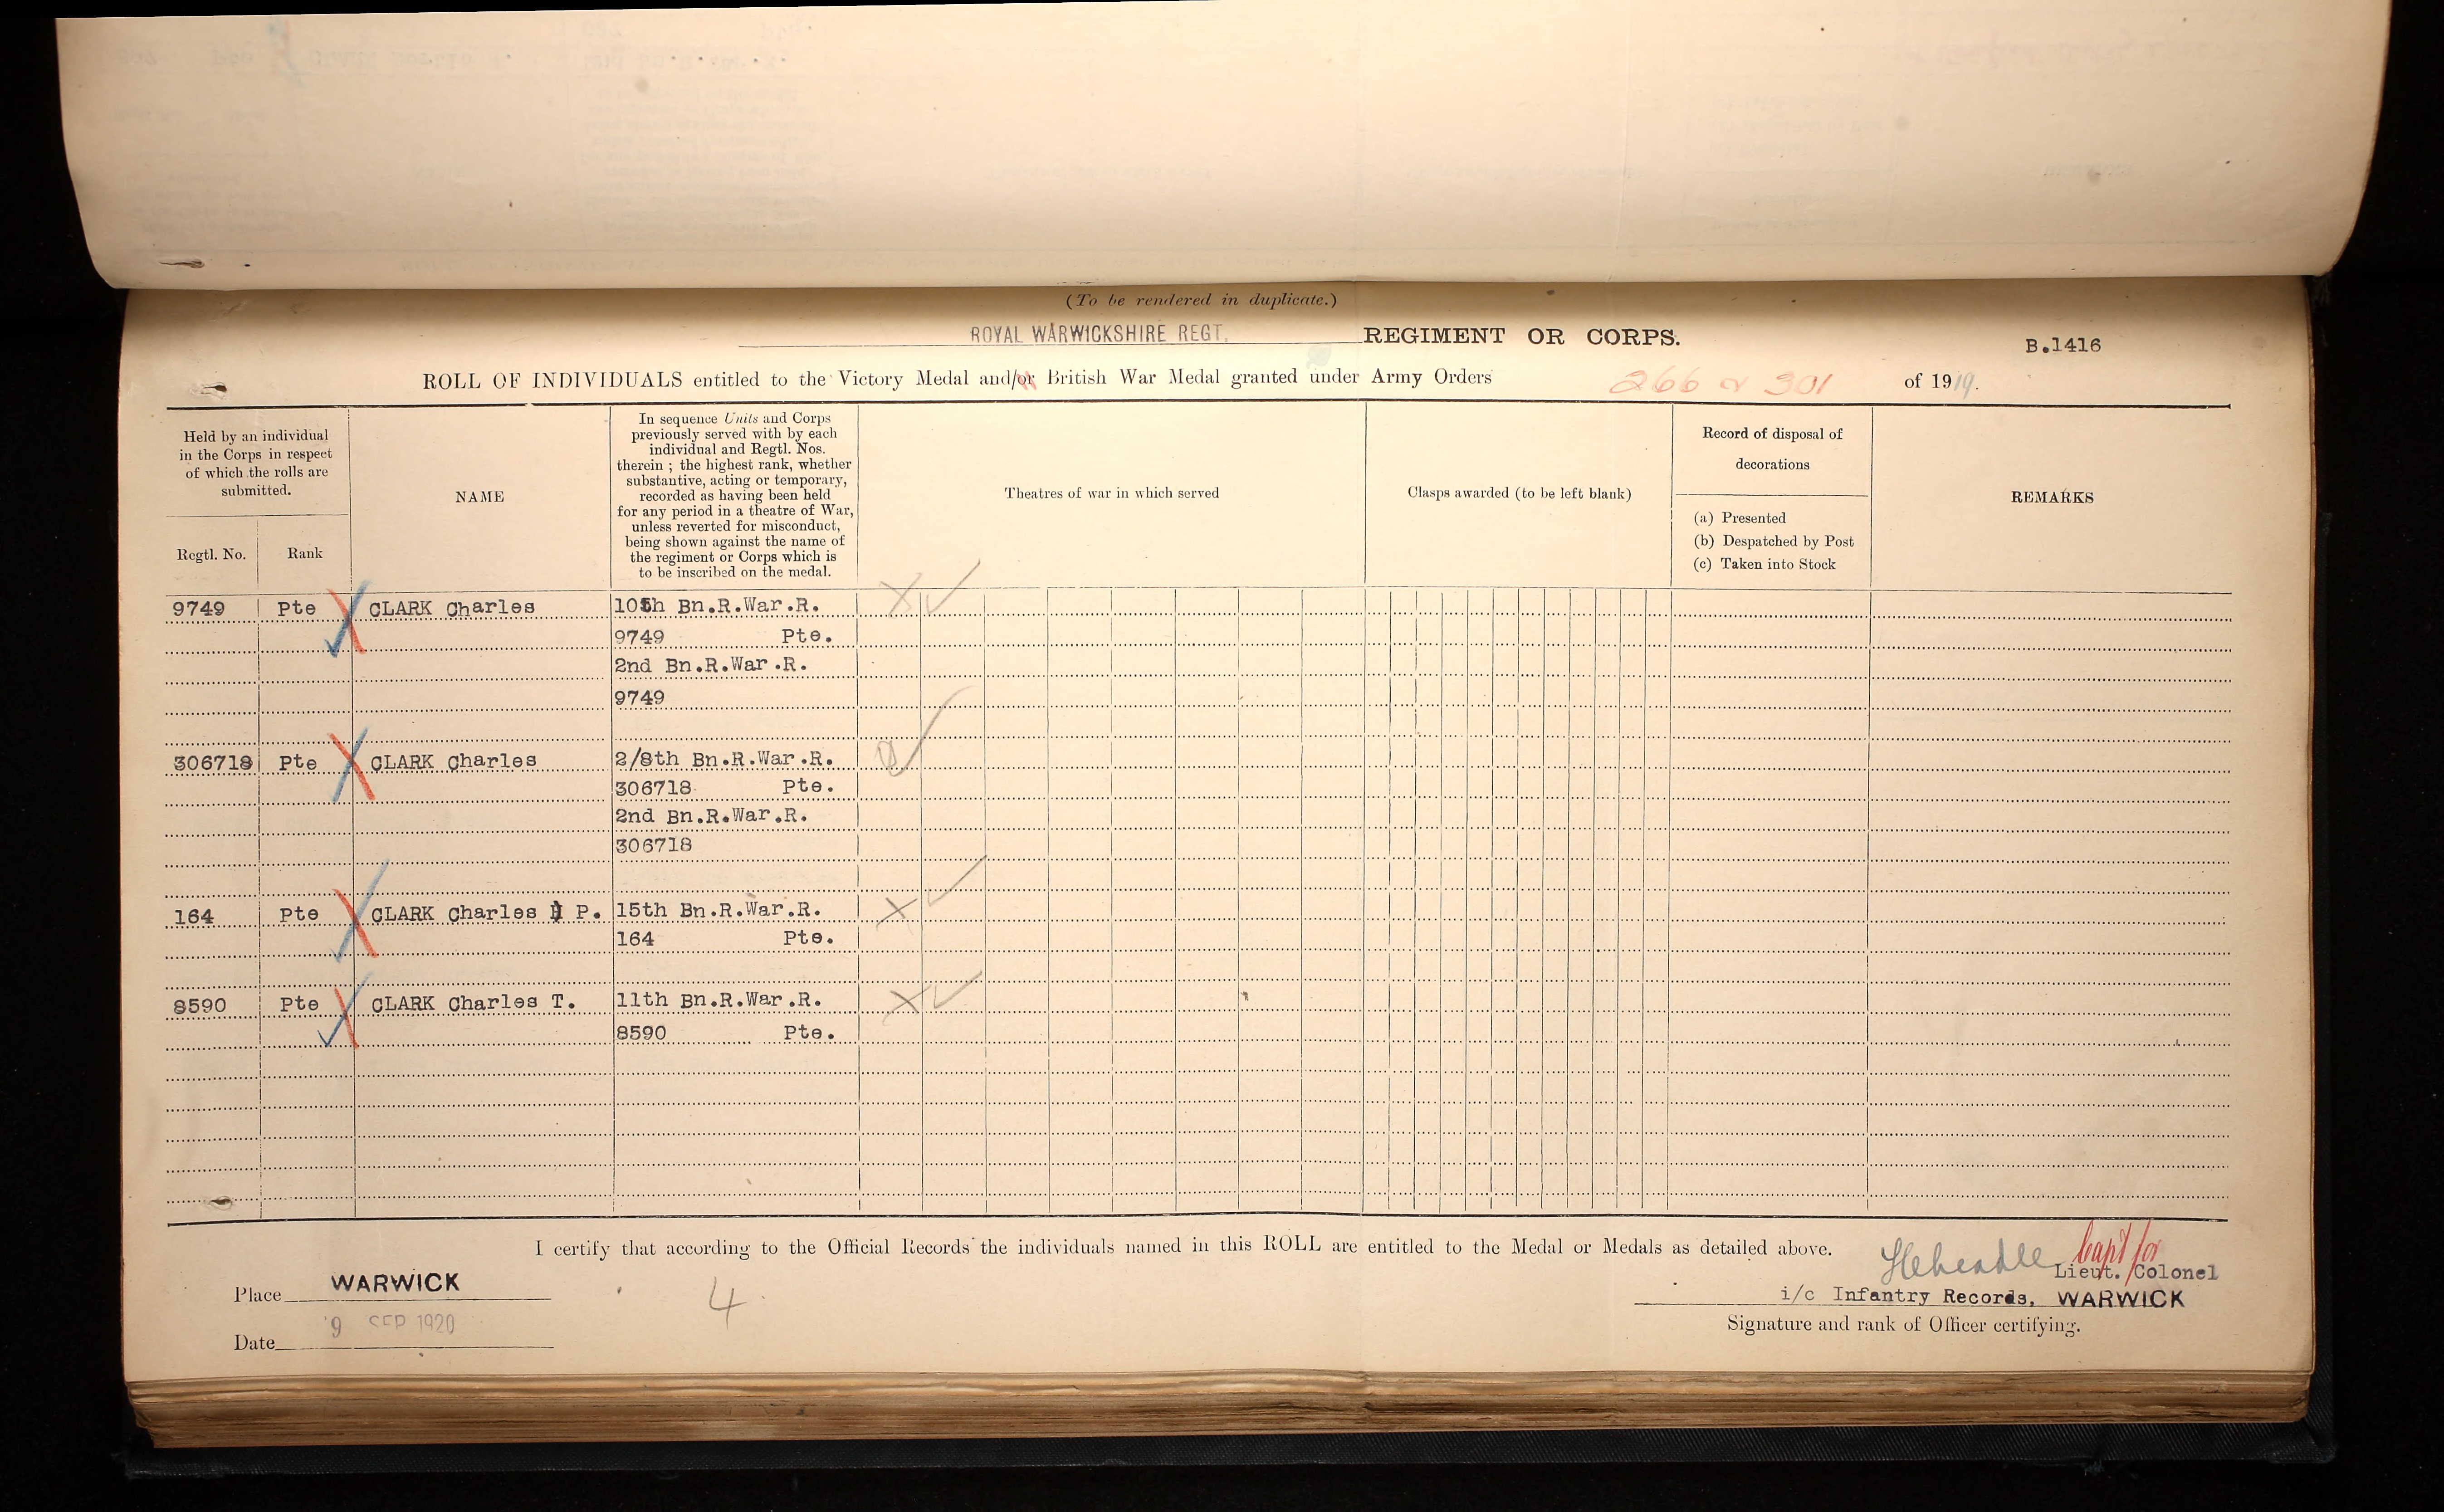 (To be rendered in duplicate.)
ROYAL WARWICKSHIRE REGT. REGIMENT OR CORPS. B.1416
ROLL OF INDIVIDUALS entitled to the Victory Medal and/or British War Medal granted under Army Orders 266 & 301 of 1919.
Held by an individual
in the Corps in respect
of which the rolls are
submitted.
Regtl. No. Rank
NAME
In sequence Units and Corps
previously served with by each
individual and Regtl. Nos.
therein ; the highest rank, whether
substantive, acting or temporary,
recorded as having been held
for any period in a theatre of War,
unless reverted for misconduct,
being shown against the name of
the regiment or Corps which is
to be inscribed on the medal.
Theatres of war in which served
Clasps awarded (to be left blank)
Record of disposal of
decorations
(a) Presented
(b) Despatched by Post
(c) Taken into Stock
REMARKS
9749 Pte CLARK Charles 10th Bn.R.War.R.
9749 Pte.
2nd Bn.R.War.R.
9749
306718 Pte CLARK Charles 2/8th Bn.R.War.R.
306718 Pte.
2nd Bn.R.War.R.
306718
164 Pte CLARK Charles P. 15th Bn.R.War.R.
164 Pte.
8590 Pte CLARK Charles T. 11th Bn.R.War.R.
8590 Pte.
I certify that according to the Official Records the individuals named in this ROLL are entitled to the Medal or Medals as detailed above.
Capt for
Lieut. Colonel
Place WARWICK
4
i/c Infantry Records, WARWICK
Date 9 SEP 1920
Signature and rank of Officer certifying.